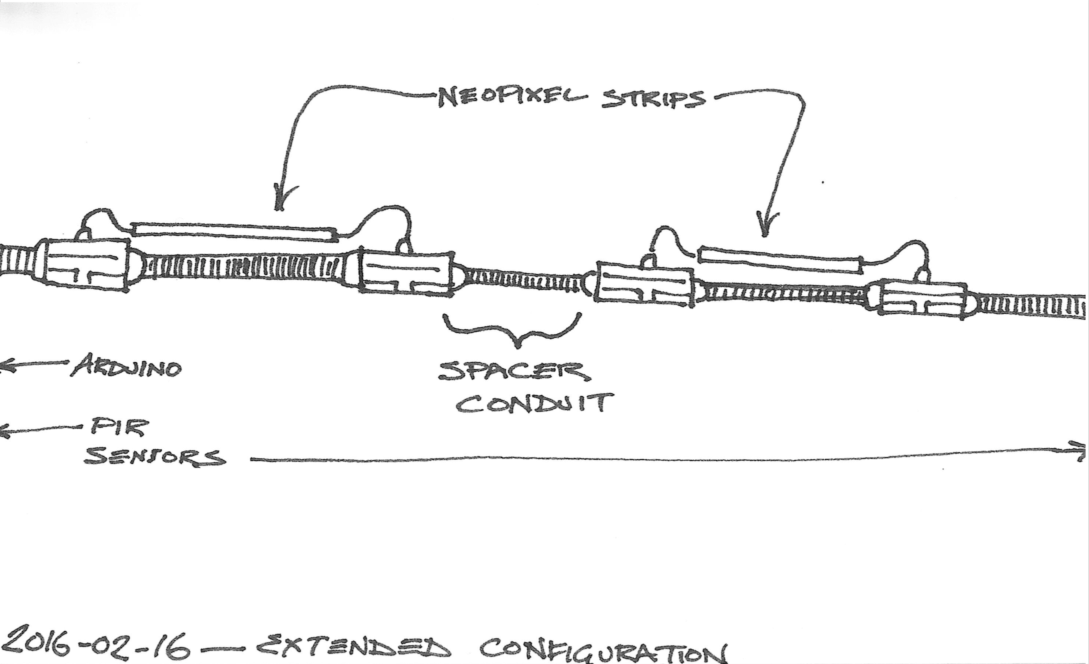 NEOPIXEL STRIPS
SPACER
CONDUIT
ARDUINO
PIR
SENSORS
2016-02-16 — EXTENDED CONFIGURATION